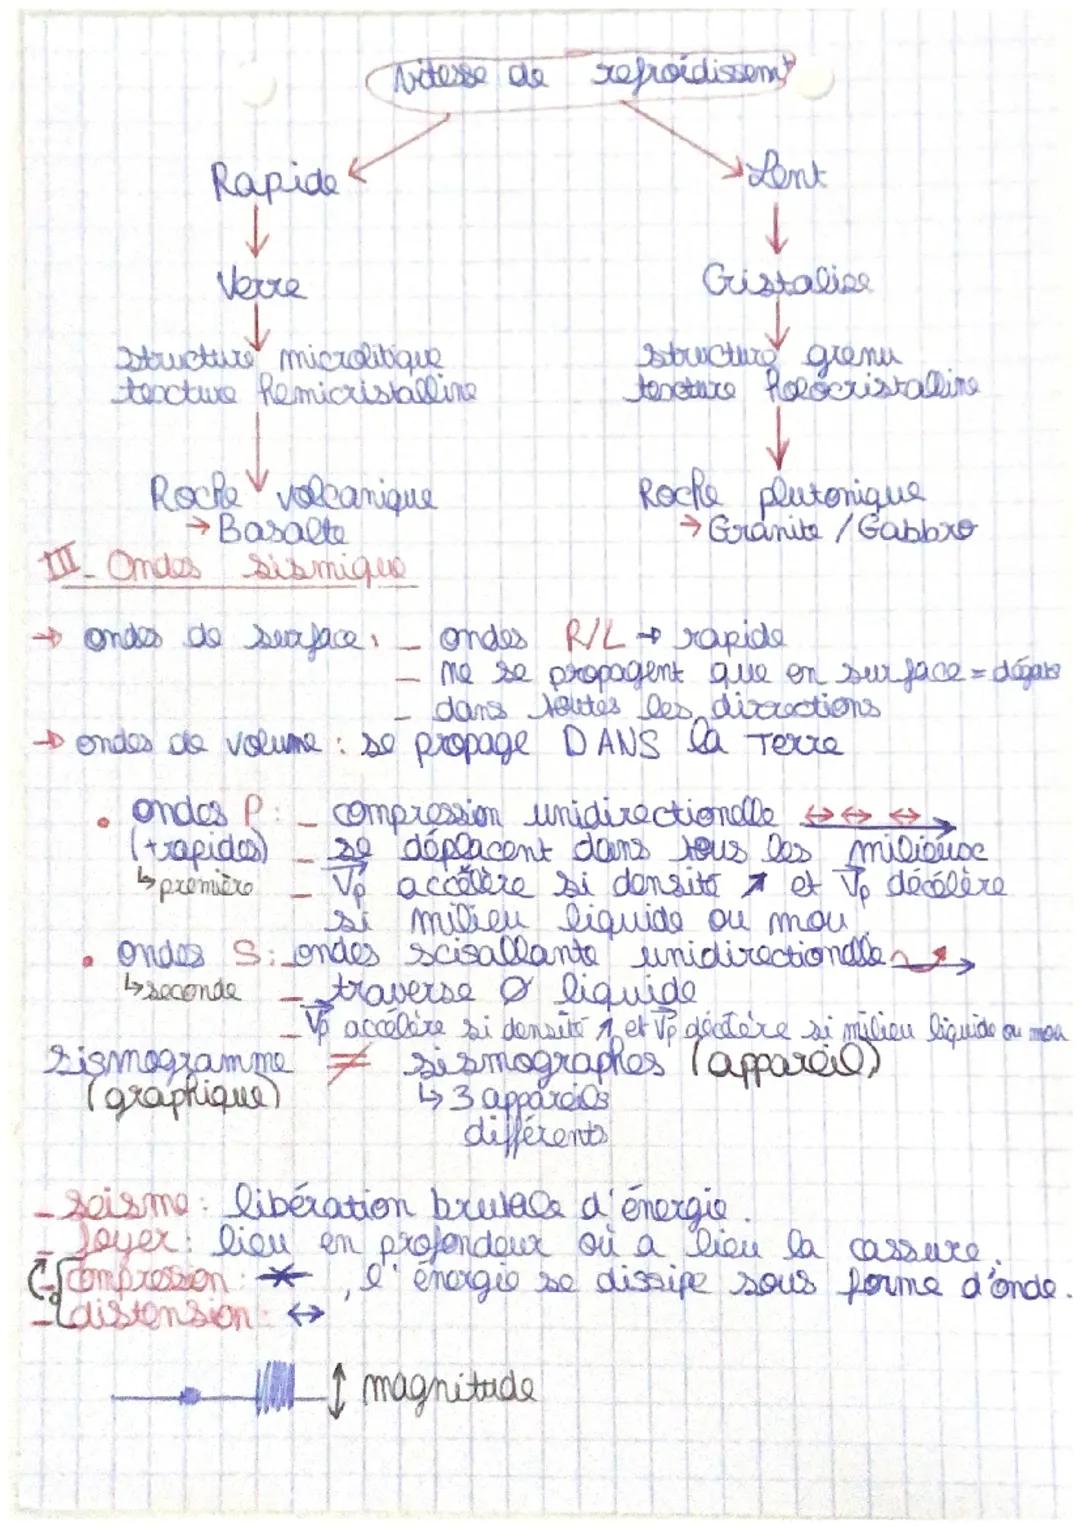 vitesse de refroidissemt
Rapide Lent
Verre Cristalise
structure microlitique structure grenu
texture hemicristalline texture holocristalline
Roche volcanique Roche plutonique
→ Basalte → Granite / Gabbro
III - Ondes sismique
→ ondes de surface : - ondes R/L → rapide
- ne se propagent que en surface = dégats
- dans toutes les dirrections
→ ondes de volume : se propage DANS la Terre
• ondes P : - compression unidirectionelle ↔ ↔ ↔
(+rapides) - se déplacent dans tous les milieux
↳ première - Vp accélère si densité ↗ et Vp décélère
si milieu liquide ou mou
• ondes S : - ondes scisallante unidirectionelle
↳ seconde - traverse Ø liquide
- Vp accélère si densité ↗ et Vp décélère si milieu liquide ou mou
sismogramme ≠ sismographes (appareil)
(graphique) ↳ 3 appareils
différents
- seisme : libération brutale d'énergie.
- foyer : lieu en profondeur où a lieu la cassure.
- compression : , l'énergie se dissipe sous forme d'onde.
- distension : ↔
↕ magnitude